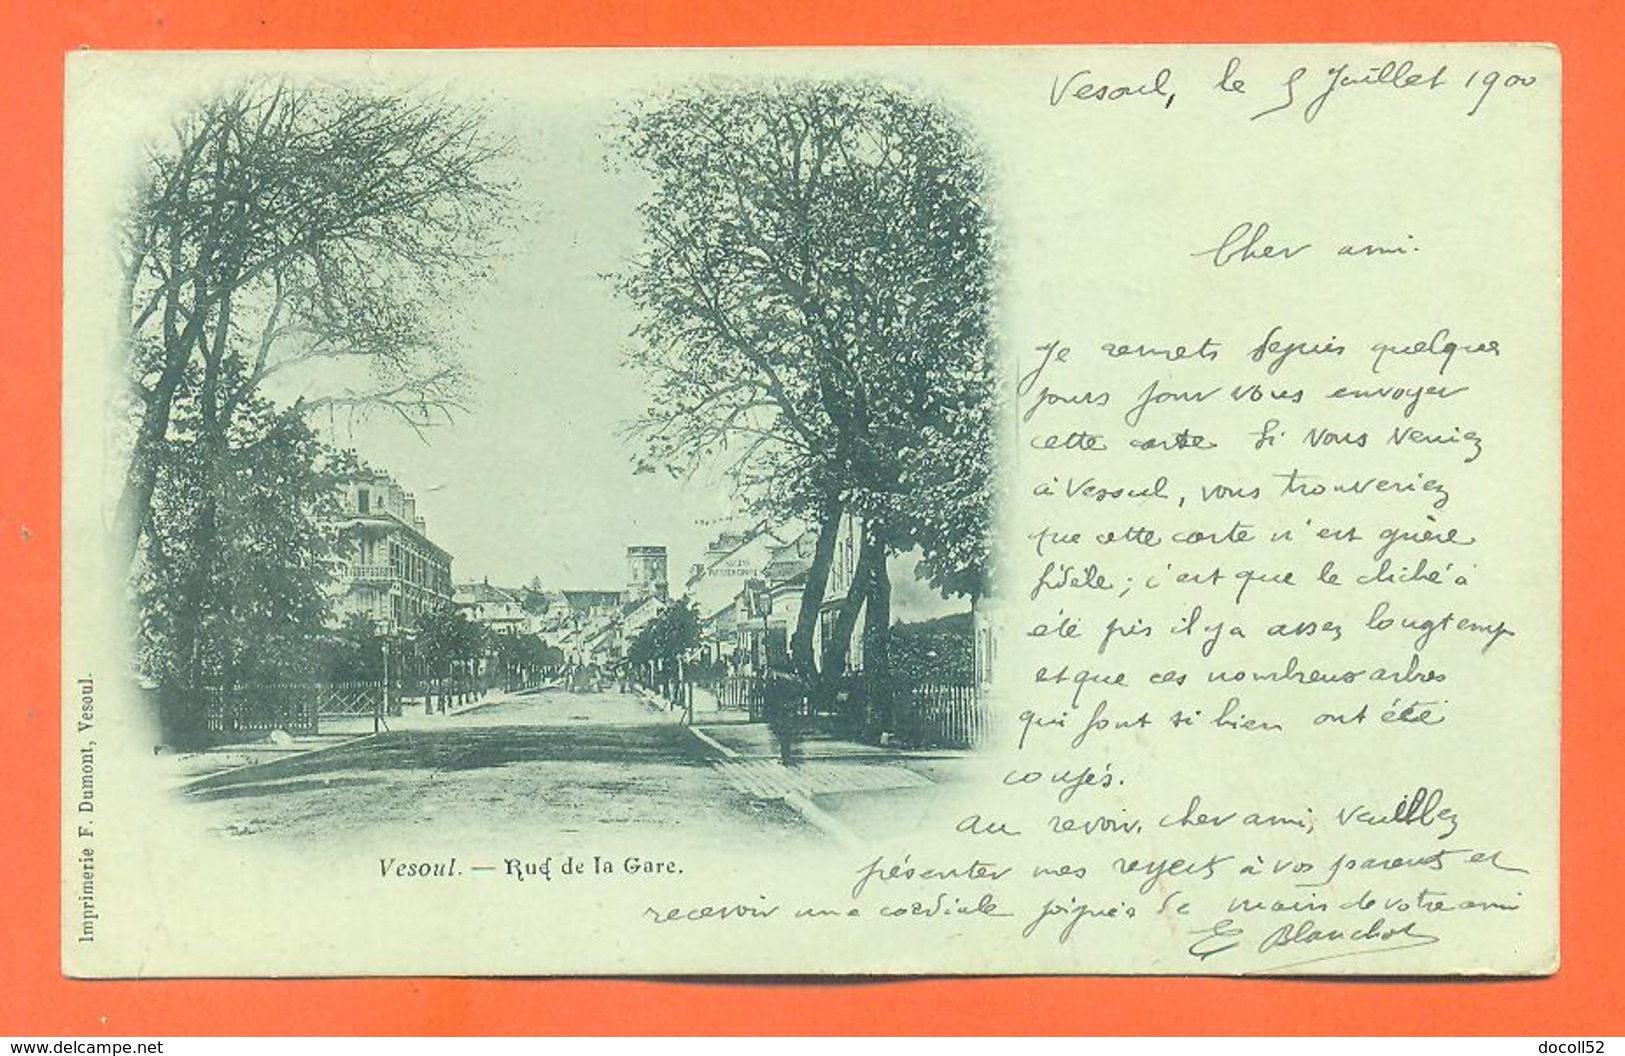 Vesoul, le 5 Juillet 1900
Cher ami.
Je remets depuis quelques
jours pour vous envoyer
cette carte Si vous veniez
à Vesoul, vous trouveriez
que cette carte n'est guère
fidèle; c'est que le cliché a
été pris il y a assez longtemps
et que ces nombreux arbres
qui font si bien ont été
coupés.
Au revoir, cher ami, veuillez
présenter mes respects à vos parents et
recevoir une cordiale poignée de main de votre ami
E Blanchot
Vesoul. — Rue de la Gare.
Imprimerie F. Dumont, Vesoul.
www.delcampe.net
docoll52